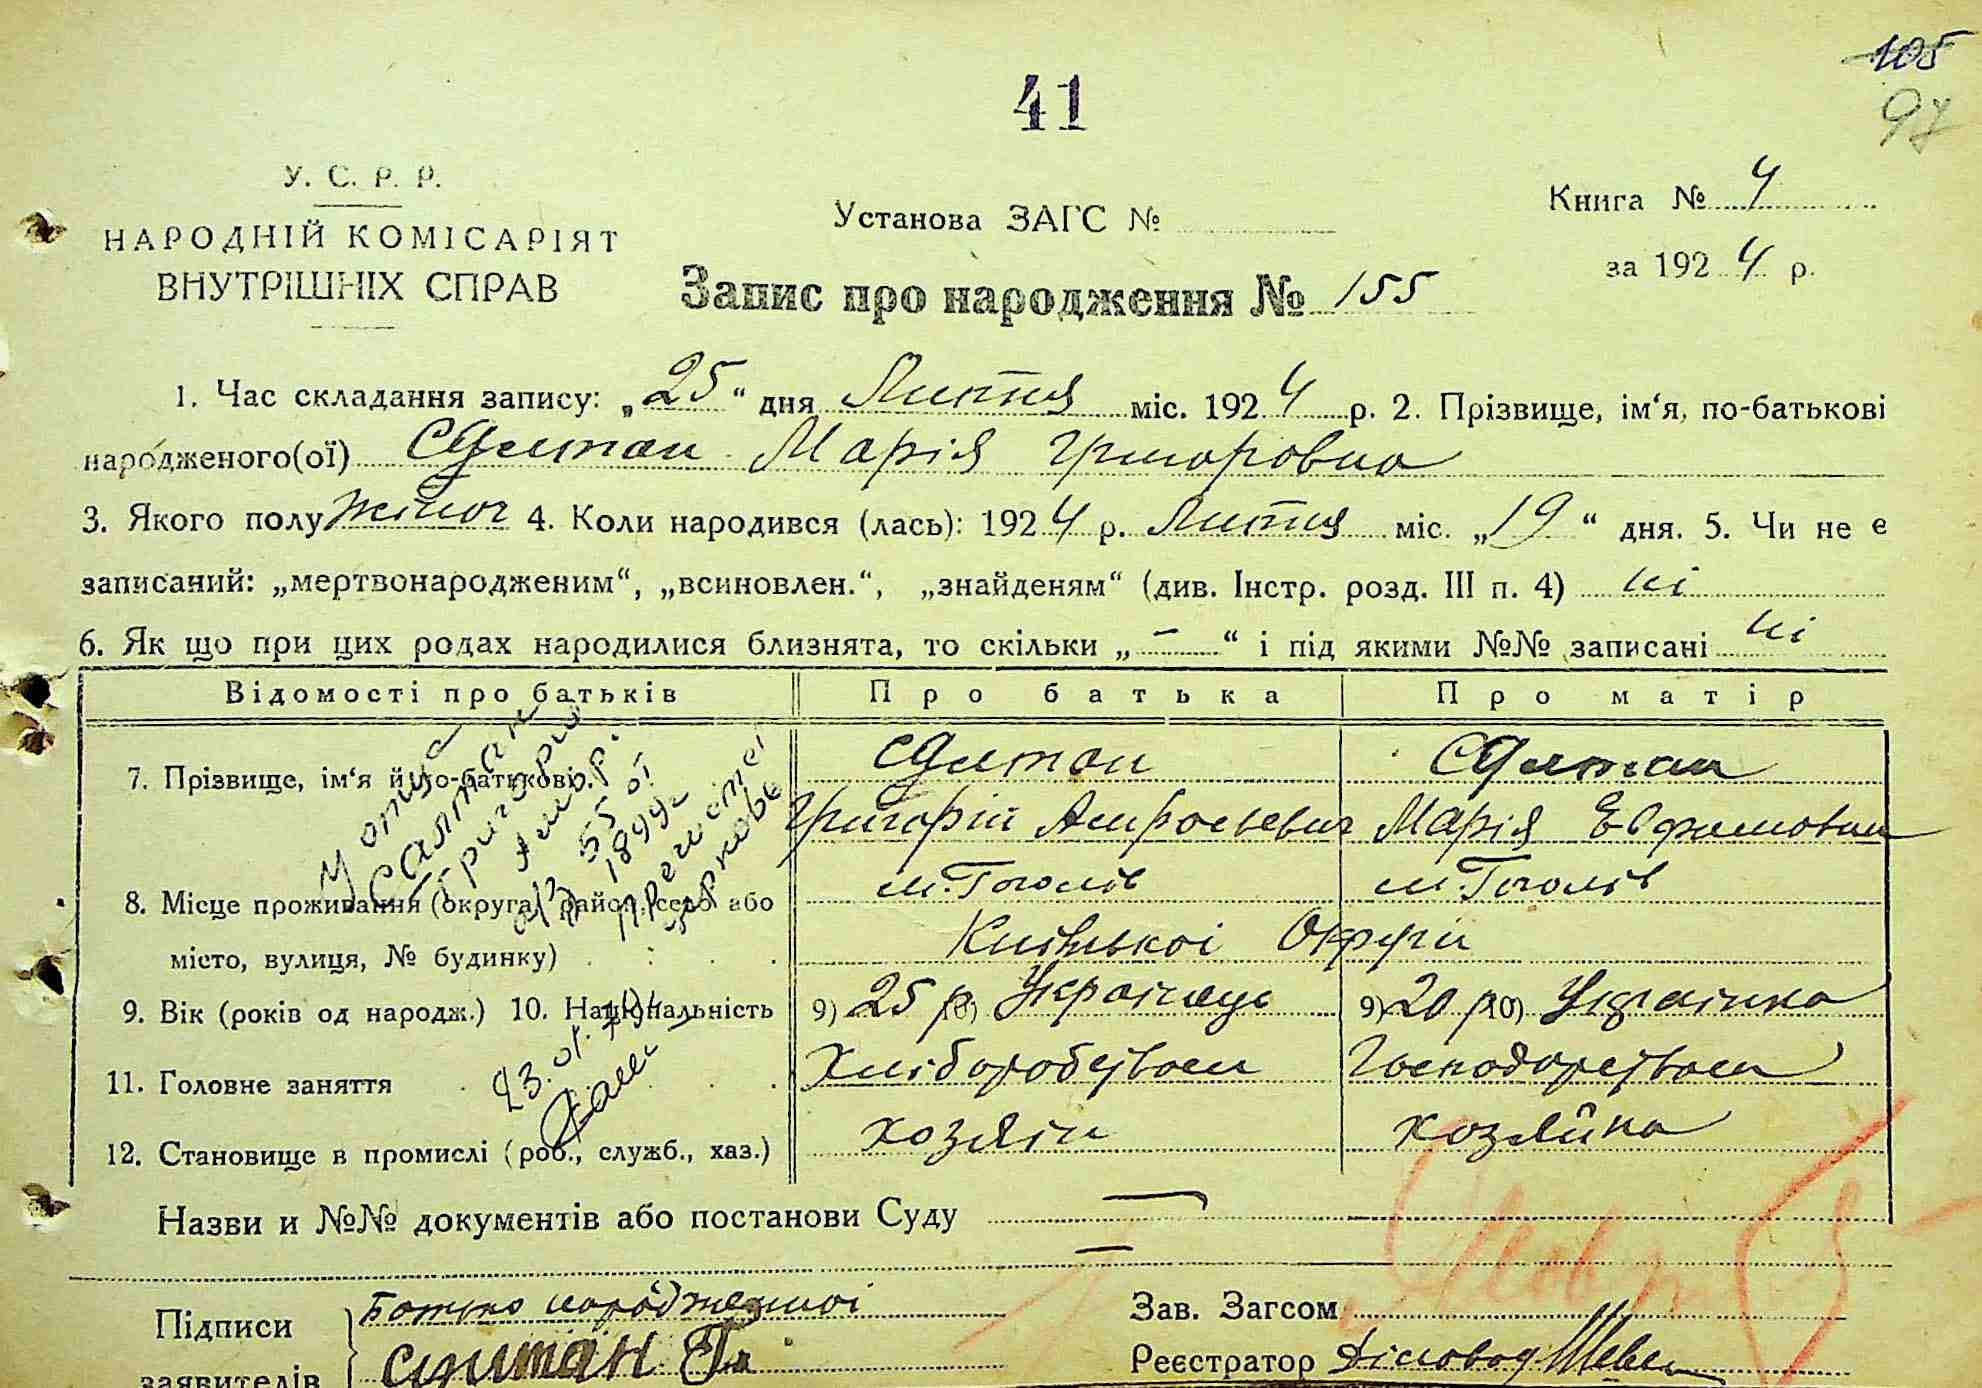 105
41
97
У. С. Р. Р.
НАРОДНІЙ КОМІСАРІЯТ
ВНУТРІШНІХ СПРАВ
Установа ЗАГС №
Книга № 4
за 1924 р.
Запис про народження № 155
1. Час складання запису: „25“ дня Лютня міс. 1924 р. 2. Прізвище, ім‘я, по-батькові
народженого(ої) Султан Марія Григоровна
3. Якого полу жіноч 4. Коли народився (лась): 1924 р. Лютня міс. „19“ дня. 5. Чи не є
записаний: „мертвонародженим“, „всиновлен.“, „знайденям“ (див. Інстр. розд. III п. 4) ні
6. Як що при цих родах народилися близнята, то скільки „—“ і під якими №№ записані ні
Відомості про батьків Про батька Про матір
7. Прізвище, ім‘я й по-батькові. Султан Султан
Григорій Амросьевич Марія Евфимовна
8. Місце проживання (округа, район, село або м. Гоголів м. Гоголів
місто, вулиця, № будинку) Київської Округи
9. Вік (років од народж.) 10. Національність 9) 25 р 10) Українець 9) 20 р 10) Українка
11. Головне заняття Хліборобством Господарством
12. Становище в промислі (роб., служб., хаз.) хозяін хозяйка
Назви и №№ документів або постанови Суду —
—
Підписи Батько народженноі Зав. Загсом
заявителів Султан Г. Реєстратор Діловод